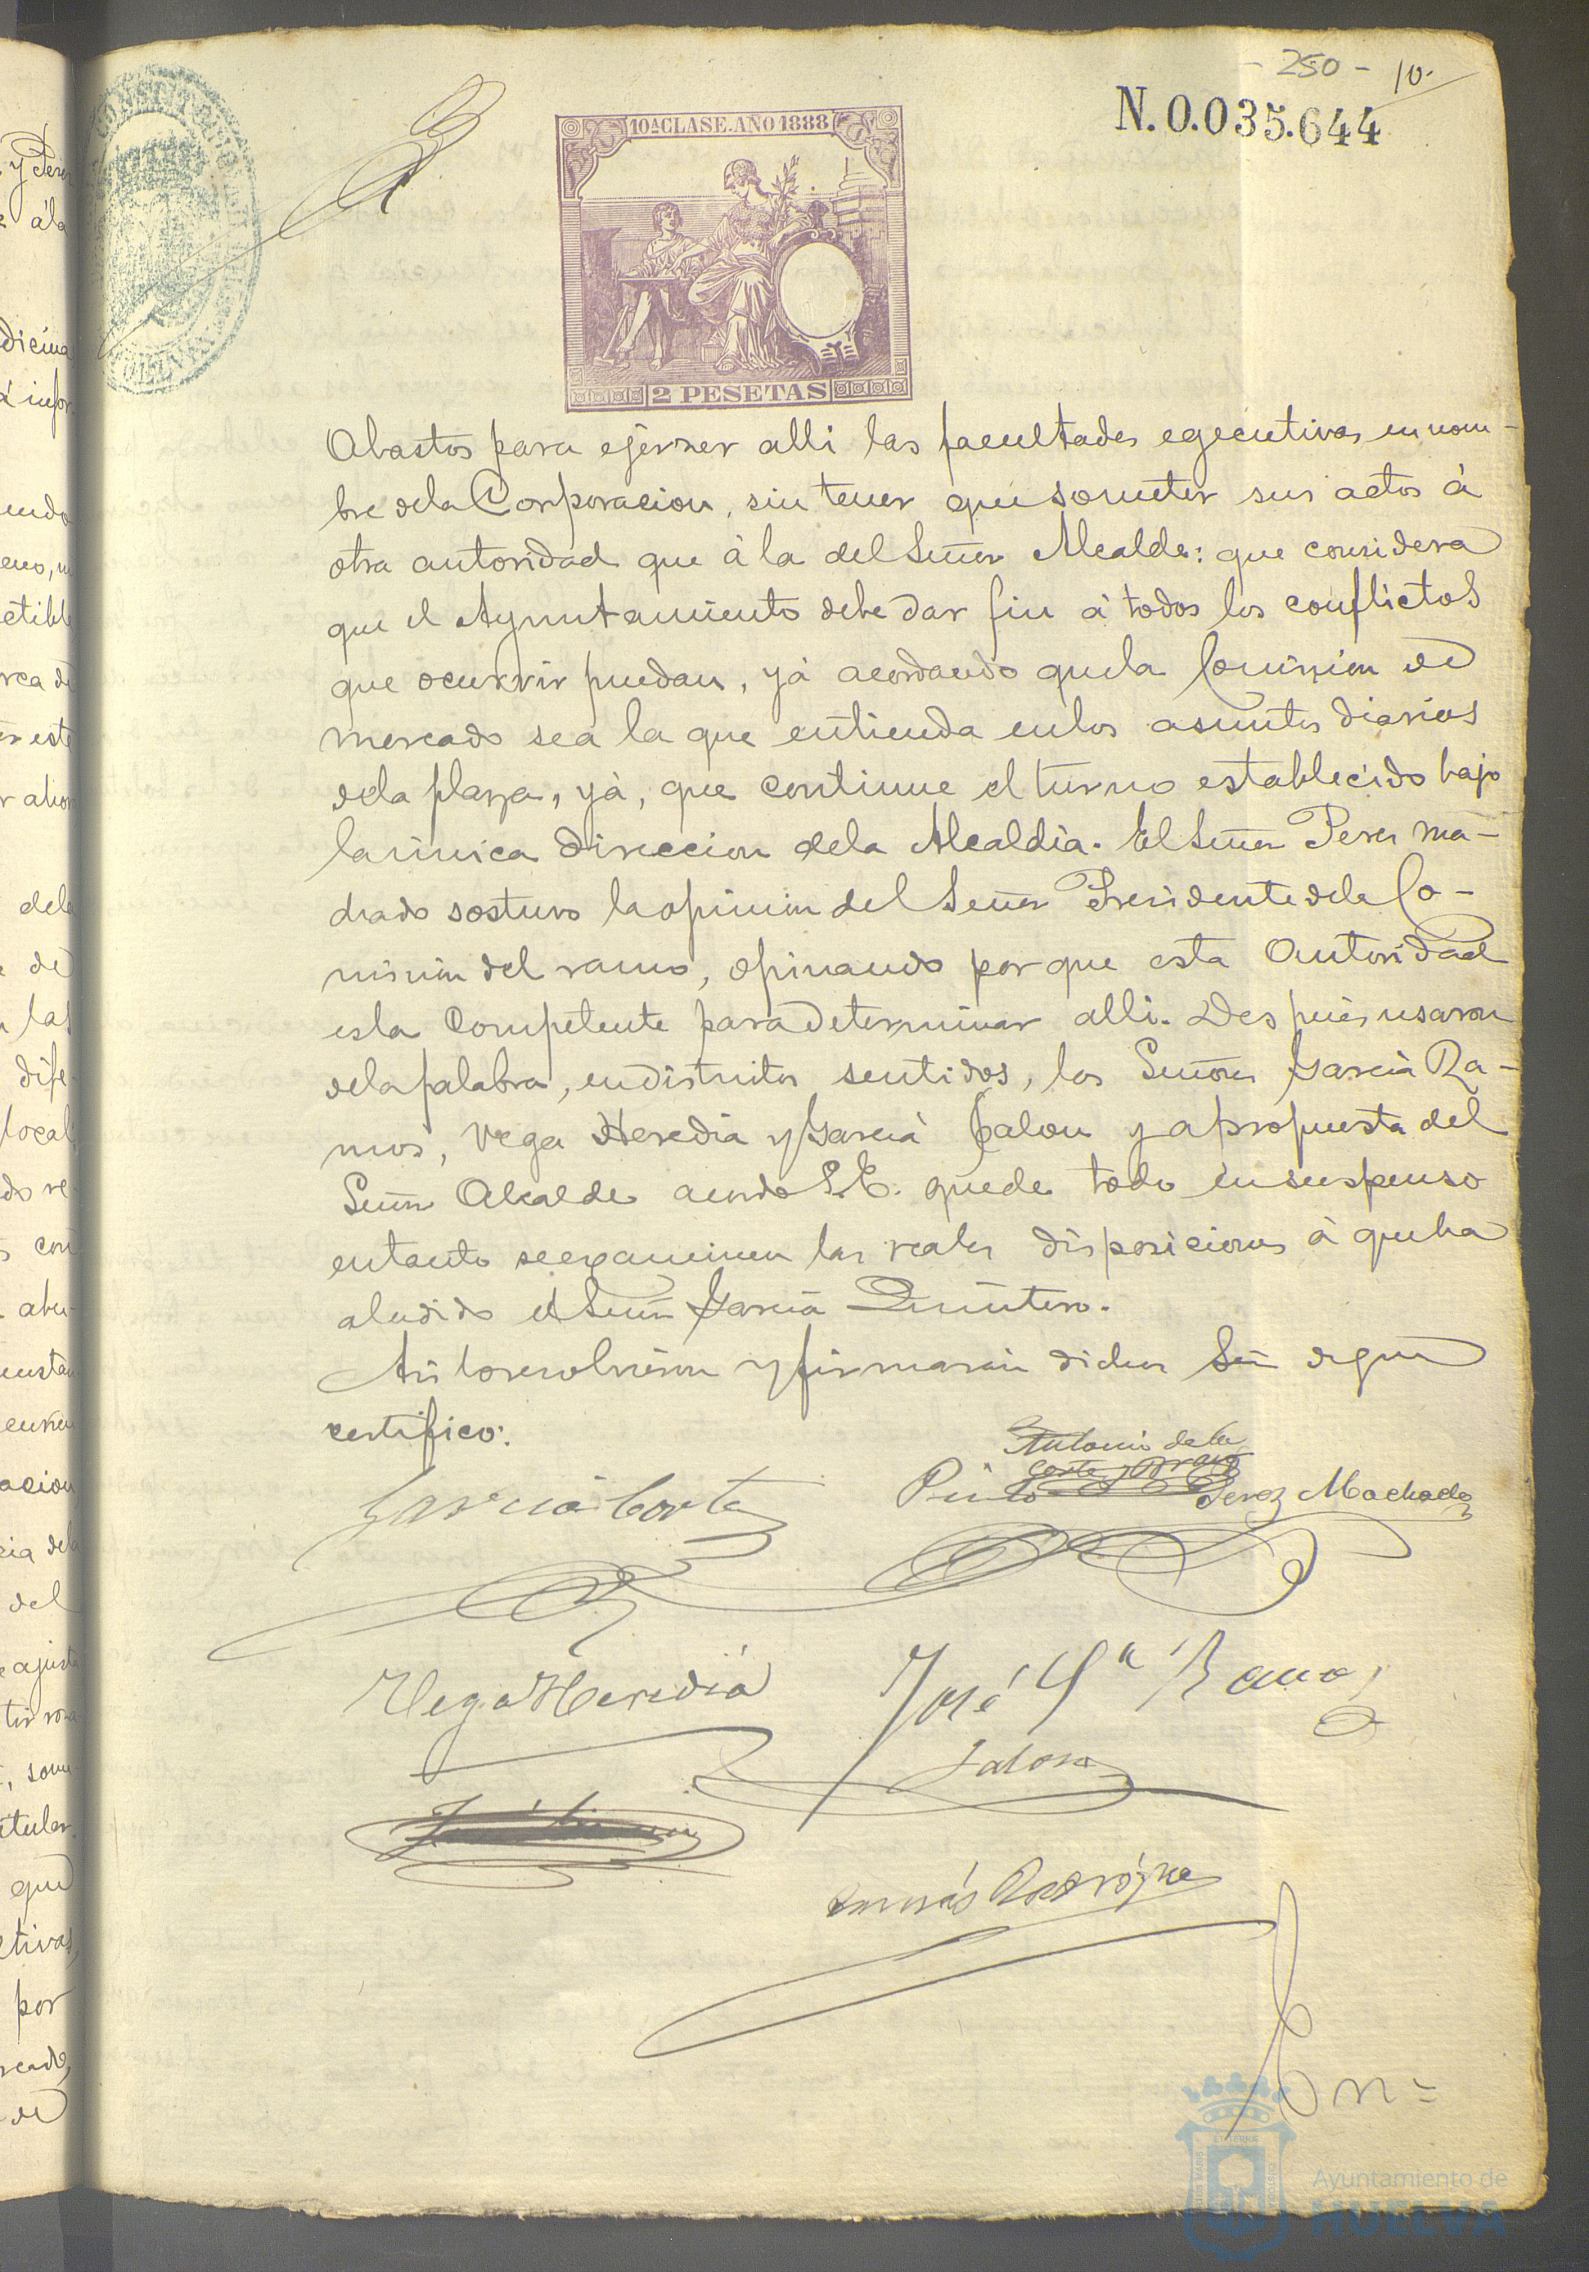 - 250 - 10.
N.0.035.644
10ª CLASE. AÑO 1888
2 PESETAS
Abastos para ejerzer alli las facultades egecutivas en nom-
bre dela Corporacion, sin tener que someter sus actos à
otra autoridad que à la del Señor Alcalde: que considera
que el Ayuntamiento debe dar fin à todos los conflictos
que ocurrir puedan, yá acordando quela Comision de
mercado sea la que entienda enlos asuntos diarios
dela plaza, yà, que continue el turno establecido bajo
la unica direccion dela Alcaldia. El Señor Perez Ma-
chado sostuvo la opinion del Señor Presidente dela Co-
mision del ramo, opinando por que esta Autoridad
es la competente para determinar alli. Despues usaron
dela palabra, en distintos sentidos, los Señores Garcia Ra-
mos, Vega Heredia y Garcia Jalon y a propuesta del
Señor Alcalde acordo S.E. quede todo en suspenso
entanto se examinen las reales disposiciones à que ha
aludido el Señor Garcia Quintero.
Asi lo resolvieron y firmarán dichos Sres de que
certifico.
Antonio de la
Corte y Bravo
Garcia Cortes
Pinto
Perez Machado
Vega Heredia
José Gª Ramos
Jalon
Tomás Rodríguez
Ayuntamiento de
HUELVA